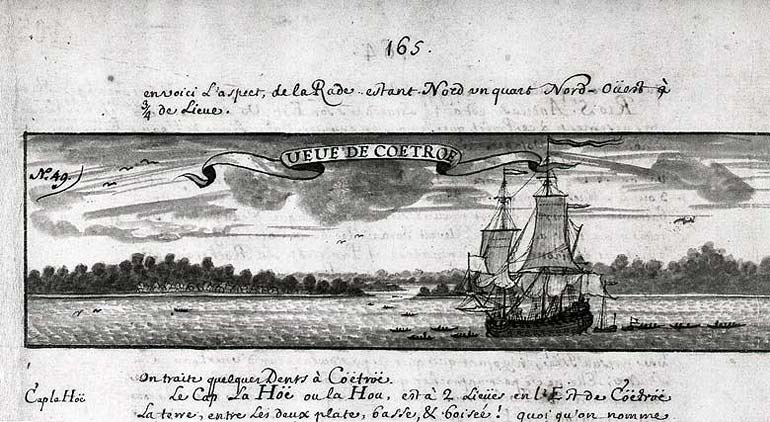 165.
en voici L'aspect, de la Rade estant Nord un quart Nord-Oüest à
3/4 de Lieue.
UEUE DE COETROE
No. 49.
On traite quelques Dents à Coëtröe.
Cap la Hoë
Le Cap La Höe ou la Hou, est à 2 Lieües en l'Est de Cöëtröe
La terre, entre Les deux plate, basse, & boisée! quoi qu'on nomme